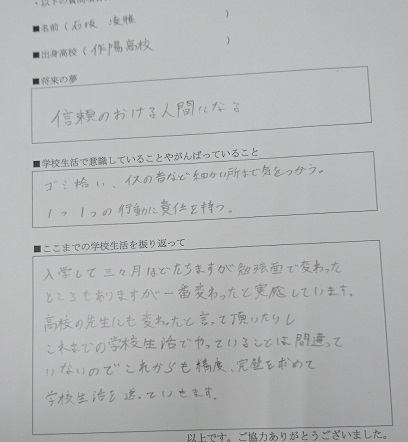 ■名前（石坂　凌雅　　　）
■出身高校（作陽高校　　　）
■将来の夢
信頼のおける人間になる
■学校生活で意識していることやがんばっていること
ゴミ拾い、イスの音など細かい所まで気をつかう。
1つ1つの行動に責任を持つ。
■ここまでの学校生活を振り返って
入学して三ヶ月ほどたちますが勉強面で変わった
ところもありますが一番変わったと実感しています。
高校の先生にも変わったと言って頂いたりし
これまでの学校生活でやっていることは間違って
いないのでこれからも精度、完璧を求めて
学校生活を送っていきます。
以上です。ご協力ありがとうございました。